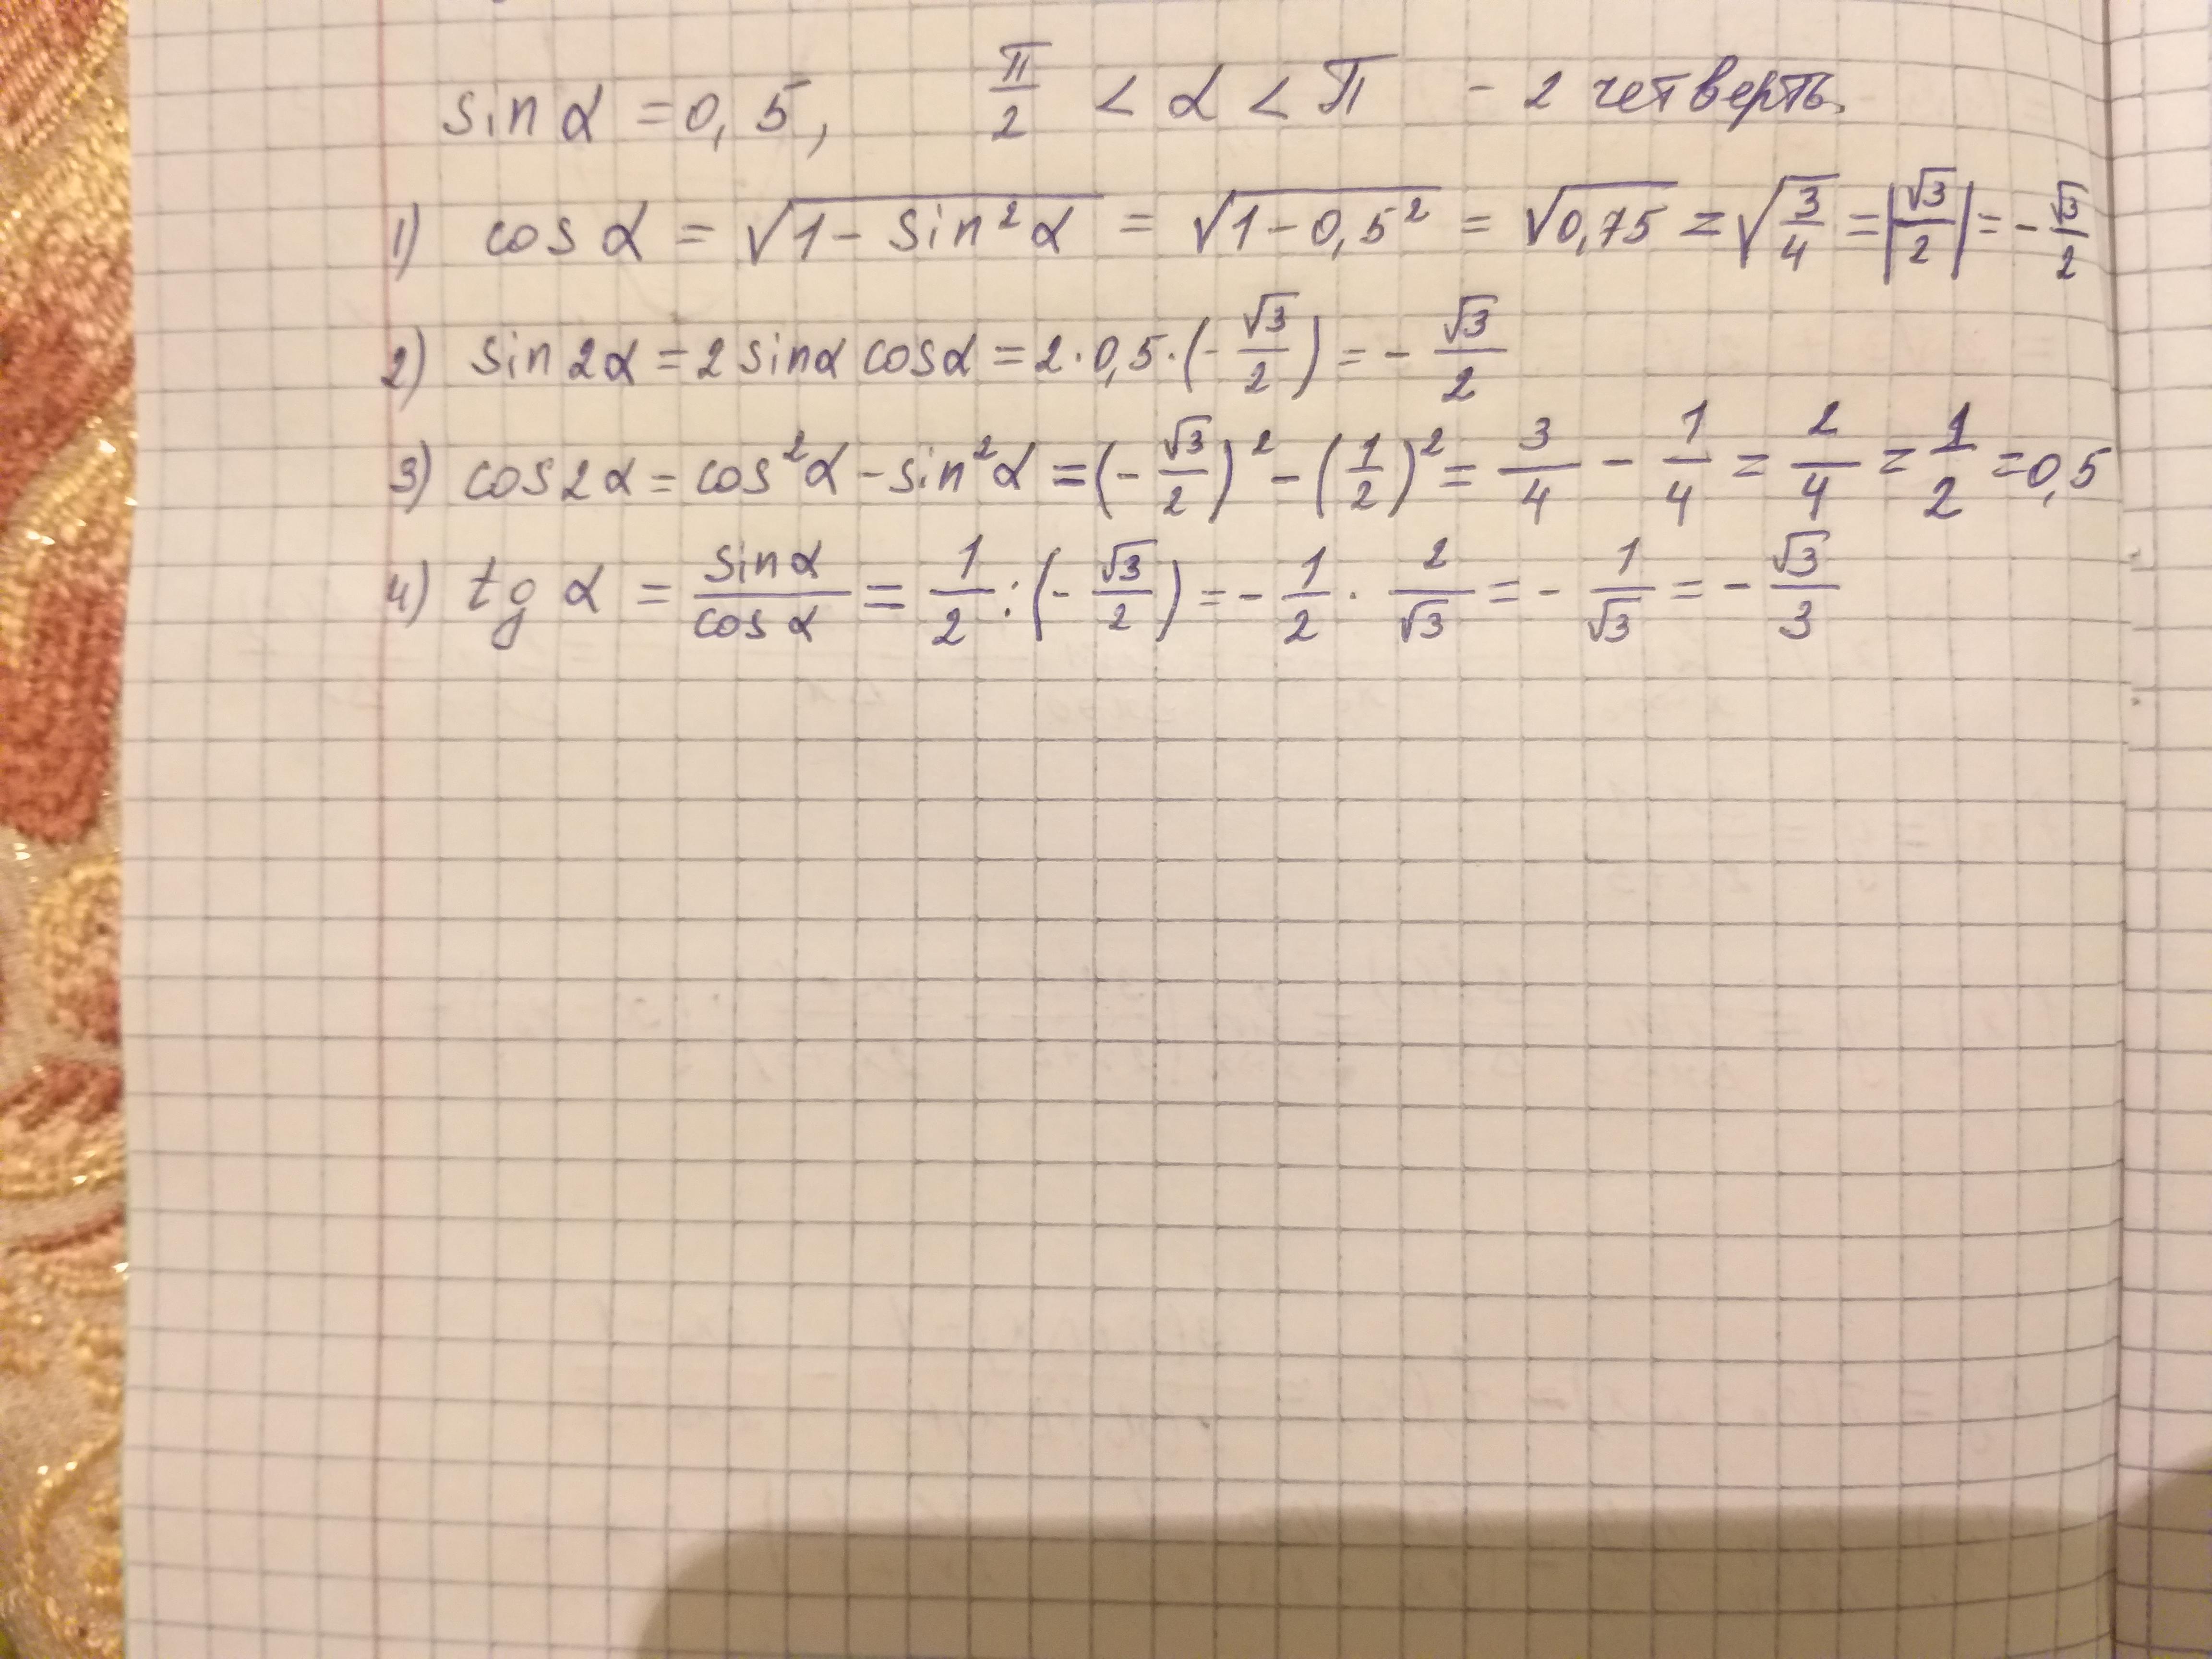 sin α = 0,5, π/2 < α < π - 2 четверть.
1) cos α = √(1 - sin²α) = √(1 - 0,5²) = √0,75 = √(3/4) = |√3/2| = - √3/2
2) sin 2α = 2 sin α cos α = 2 · 0,5 · (- √3/2) = - √3/2
3) cos 2α = cos²α - sin²α = (- √3/2)² - (1/2)² = 3/4 - 1/4 = 2/4 = 1/2 = 0,5
4) tg α = sin α/cos α = 1/2 : (- √3/2) = - 1/2 · 2/√3 = - 1/√3 = - √3/3